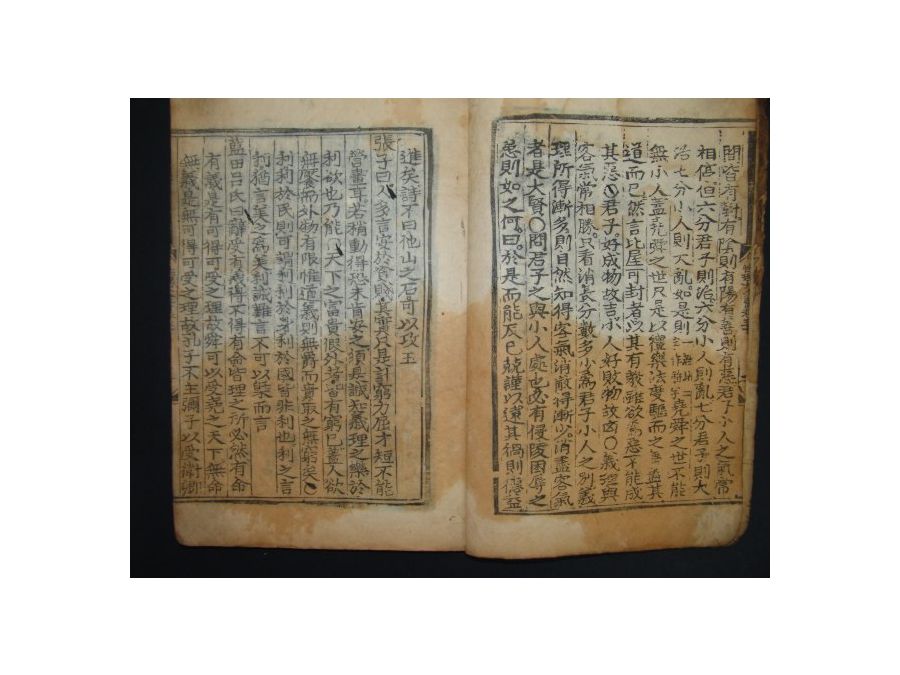 間皆有對有陰則有陽有善則有惡君子小人之氣常
相停但六分君子則治六分小人則亂七分君子則大
治七分小人則大亂如是則堯舜之世不能
無小人蓋堯舜之世只是以禮樂法度驅而之善盡其
道而已然言比屋可封者以其有敎雖欲爲惡不能成
其惡〇君子好成物故吉小人好敗物故凶〇義理與
客氣常相勝只看消長分數多少爲君子小人之別義
理所得漸多則自然知得客氣消散得漸少消盡客氣
者是大賢〇問君子之與小人處也必有侵陵困辱之
患則如之何曰於是而能反己兢謹以遠其禍則德益
進矣詩不曰他山之石可以攻玉
張子曰人多言安於貧賤其實只是計窮力屈才短不能
營畫耳若稍動得恐未肯安之須是誠知義理之樂於
利欲也乃能〇天下之富貴假外者皆有窮已蓋人欲
無饜而外物有限惟道義則無爵而貴取之無窮矣〇
利利於民則可謂利利於身利於國皆非利也利之言
利猶言美之爲美利誠難言不可以槩而言
藍田呂氏曰辭受有義得不得有命皆理之所必然有命
有義是有可得可受之理故舜可以受堯之天下無命
無義是無可得可受之理故孔子不主彌子以受衛卿